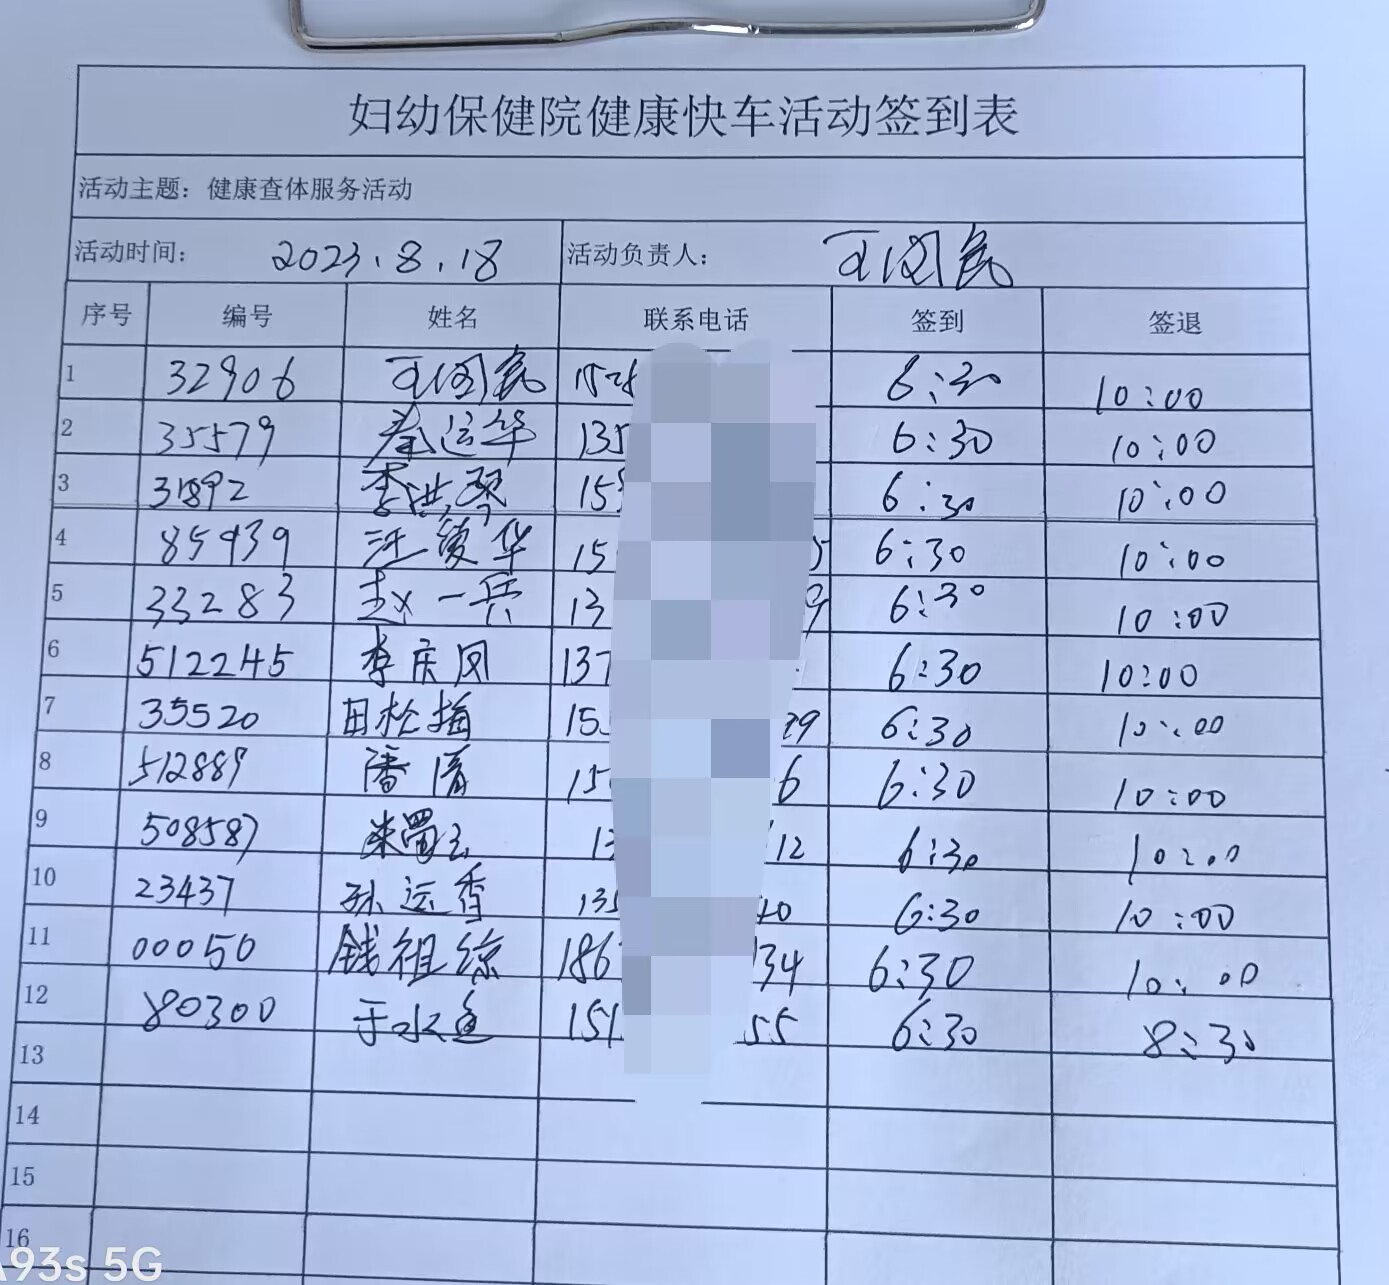 妇幼保健院健康快车活动签到表
活动主题：健康查体服务活动
活动时间： 2023.8.18 活动负责人： 王国亮
序号 编号 姓名 联系电话 签到 签退
1 32906 王国亮 1525 6:30 10:00
2 35579 秦运华 135 6:30 10:00
3 31892 李洪琴 15 6:30 10:00
4 85939 汪俊华 15 5 6:30 10:00
5 33283 赵一兵 13 9 6:30 10:00
6 512245 李庆凤 137 6:30 10:00
7 35520 田松梅 15 29 6:30 10:00
8 512889 潘清 15 6 6:30 10:00
9 508587 13 12 6:30 10:00
10 23437 孙运香 135 40 6:30 10:00
11 00050 钱祖琼 186 34 6:30 10:00
12 80300 于水 151 55 6:30 8:30
13
14
15
16
A93s 5G